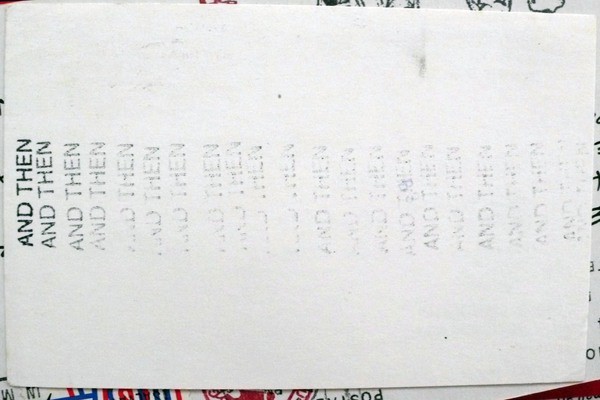 AND THEN
AND THEN
AND THEN
AND THEN
AND THEN
AND THEN
AND THEN
AND THEN
AND THEN
AND THEN
AND THEN
AND THEN
AND THEN
AND THEN
AND THEN
AND THEN
AND THEN
AND THEN
AND THEN
AND THEN
AND THEN
AND THEN